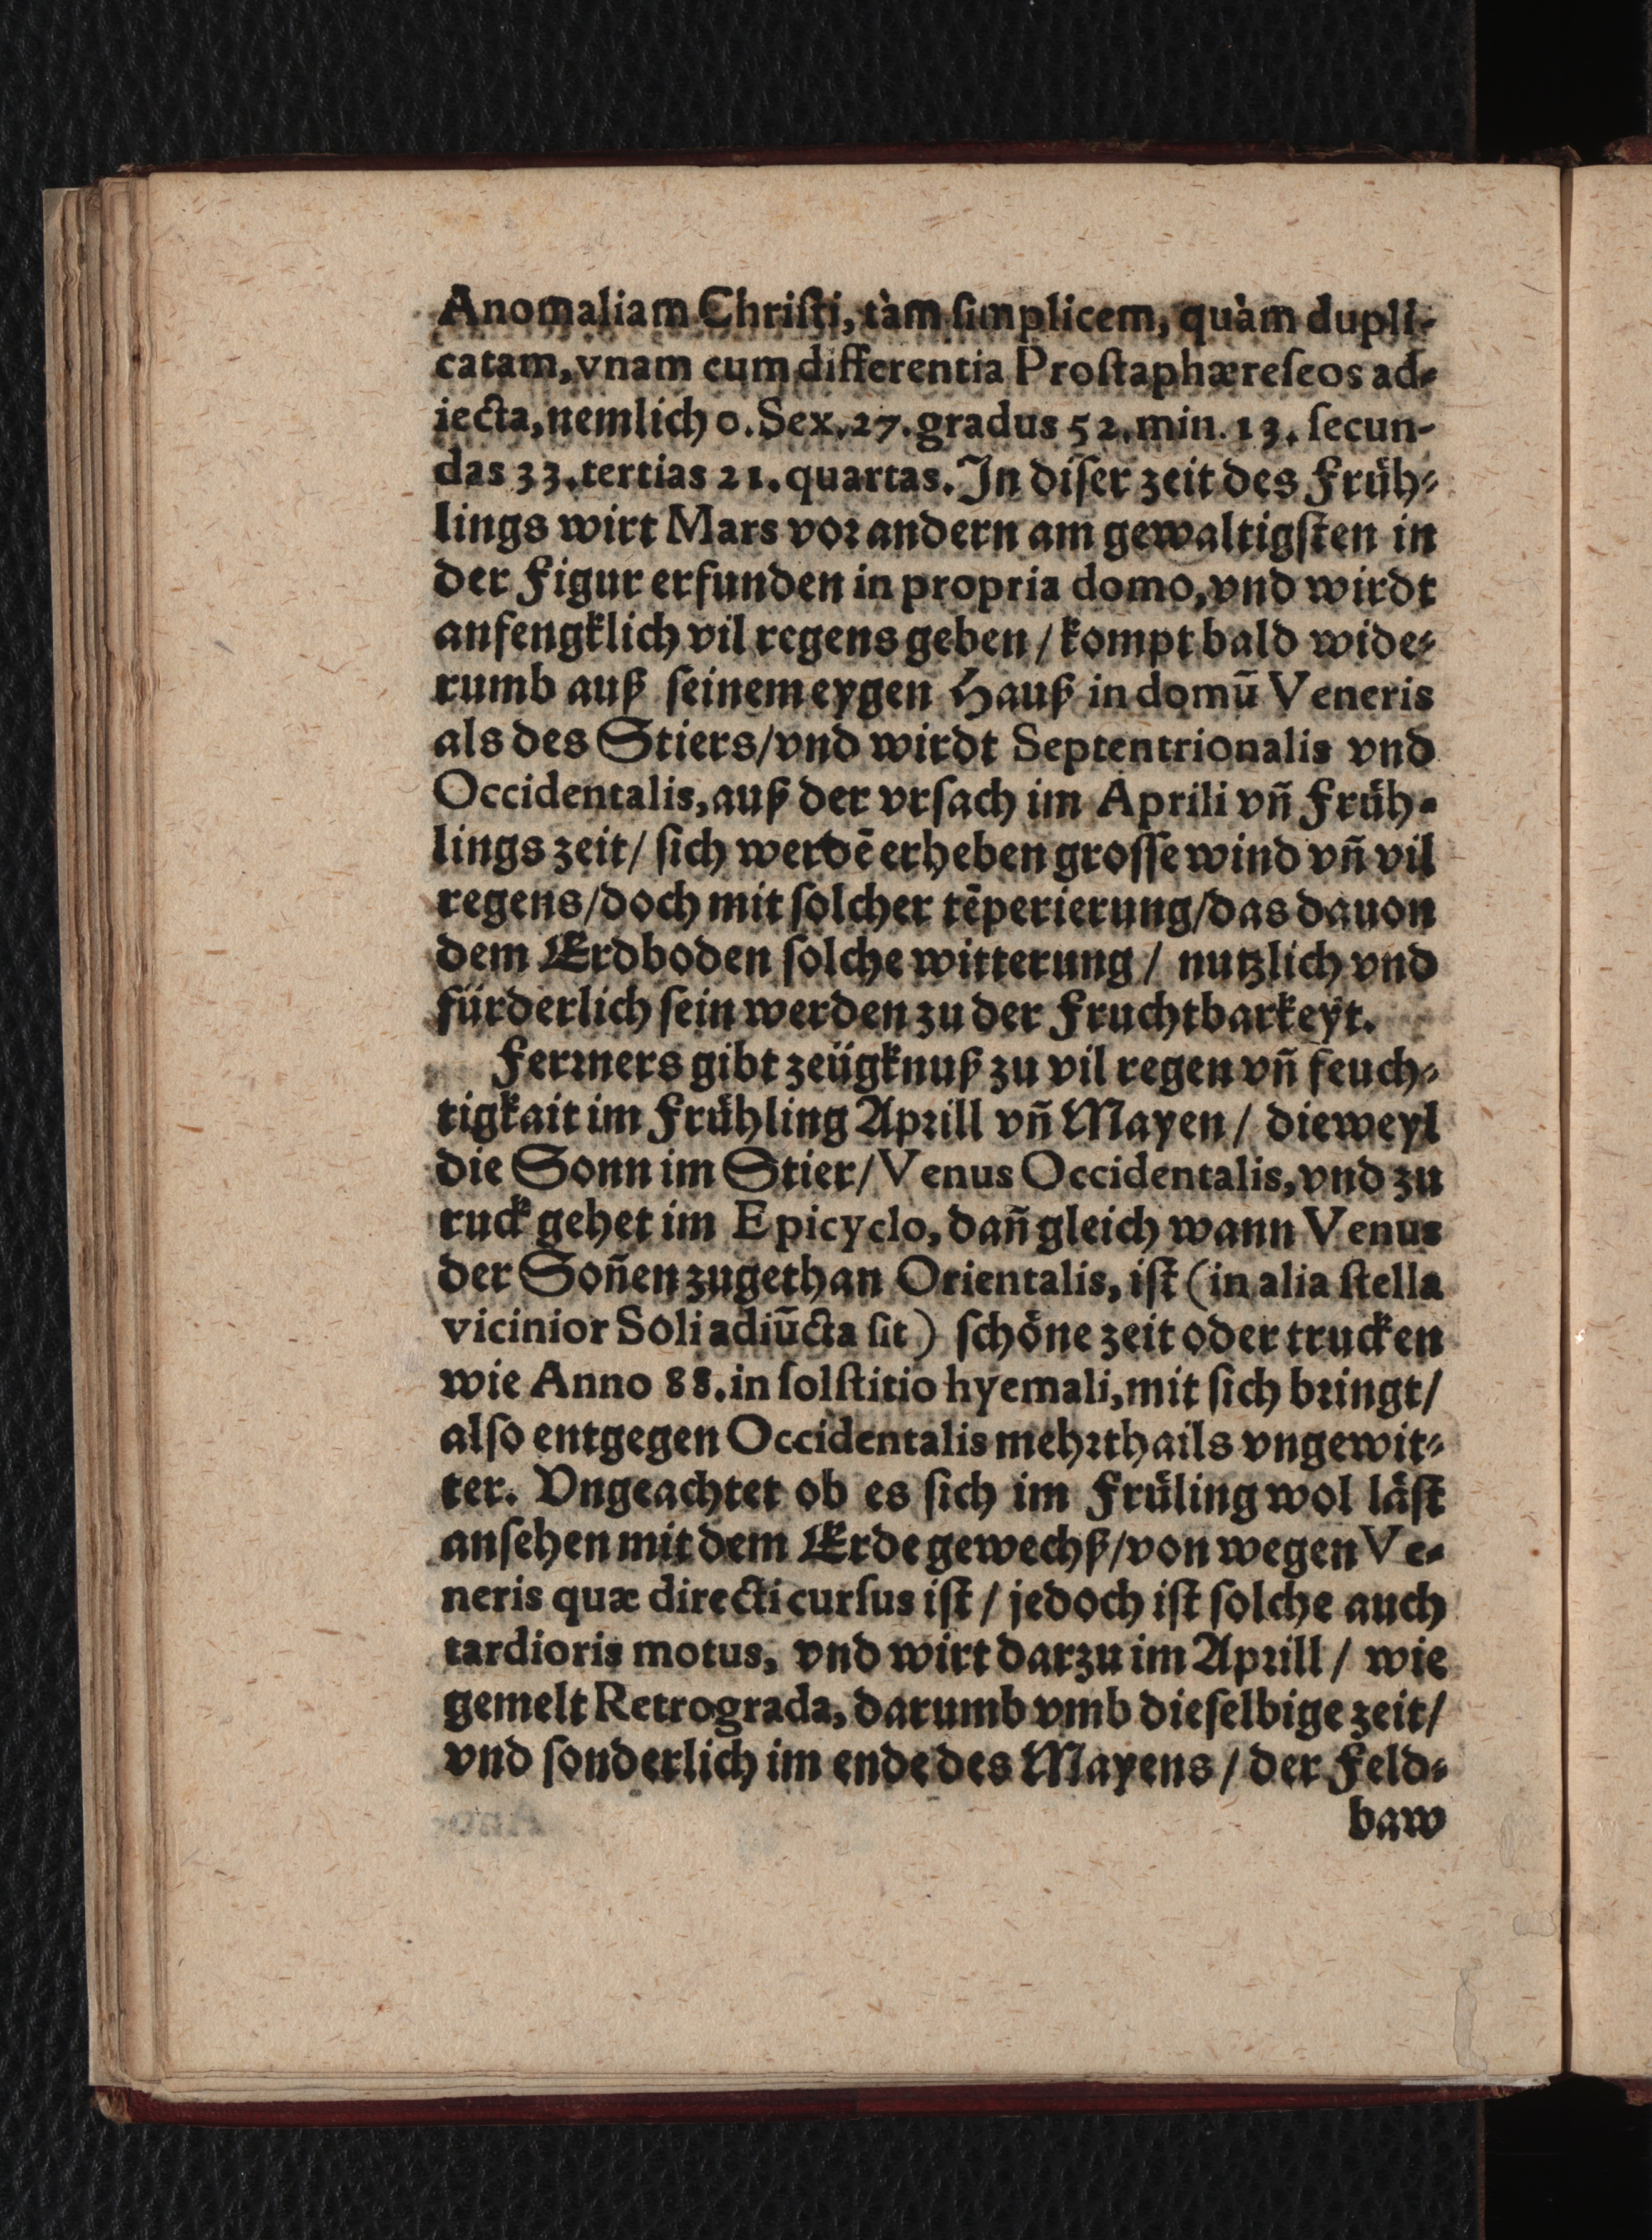 Anomaliam Chriſti, tàm ſimplicem, quàm dupli-
catam, vnam cum differentia Proſtaphæreſeos ad-
iecta, nemlich 0. Sex. 27. gradus 52. min. 13. ſecun-
das 33. tertias 21. quartas. In diſer zeit des Früh-
lings wirt Mars vor andern am gewaltigſten in
der Figur erfunden in propria domo, vnd wirdt
anfengklich vil regens geben / kompt bald wide-
rumb auß ſeinem eygen Hauß in domū Veneris
als des Stiers / vnd wirdt Septentrionalis vnd
Occidentalis, auß der vrſach im Aprili vn̄ Früh-
lings zeit / ſich werdē erheben groſſe wind vn̄ vil
regens / doch mit ſolcher tēperierung / das dauon
dem Erdboden ſolche witterung / nutzlich vnd
fürderlich ſein werden zu der Fruchtbarkeyt.
Ferrners gibt zeügknuß zu vil regen vn̄ feuch-
tigkait im Frühling Aprill vn̄ Mayen / dieweyl
die Sonn im Stier / Venus Occidentalis, vnd zu
ruck gehet im Epicyclo, dan̄ gleich wann Venus
der Son̄en zugethan Orientalis, iſt (in alia ſtella
vicinior Soli adiūcta ſit) ſchöne zeit oder trucken
wie Anno 88. in ſolſtitio hyemali, mit ſich bringt /
alſo entgegen Occidentalis mehrthails vngewit-
ter. Vngeachtet ob es ſich im Früling wol läſt
anſehen mit dem Erdegewechß / von wegen Ve-
neris quæ directi curſus iſt / jedoch iſt ſolche auch
tardioris motus, vnd wirt darzu im Aprill / wie
gemelt Retrograda, darumb vmb dieſelbige zeit /
vnd ſonderlich im ende des Mayens / der Feld-
baw